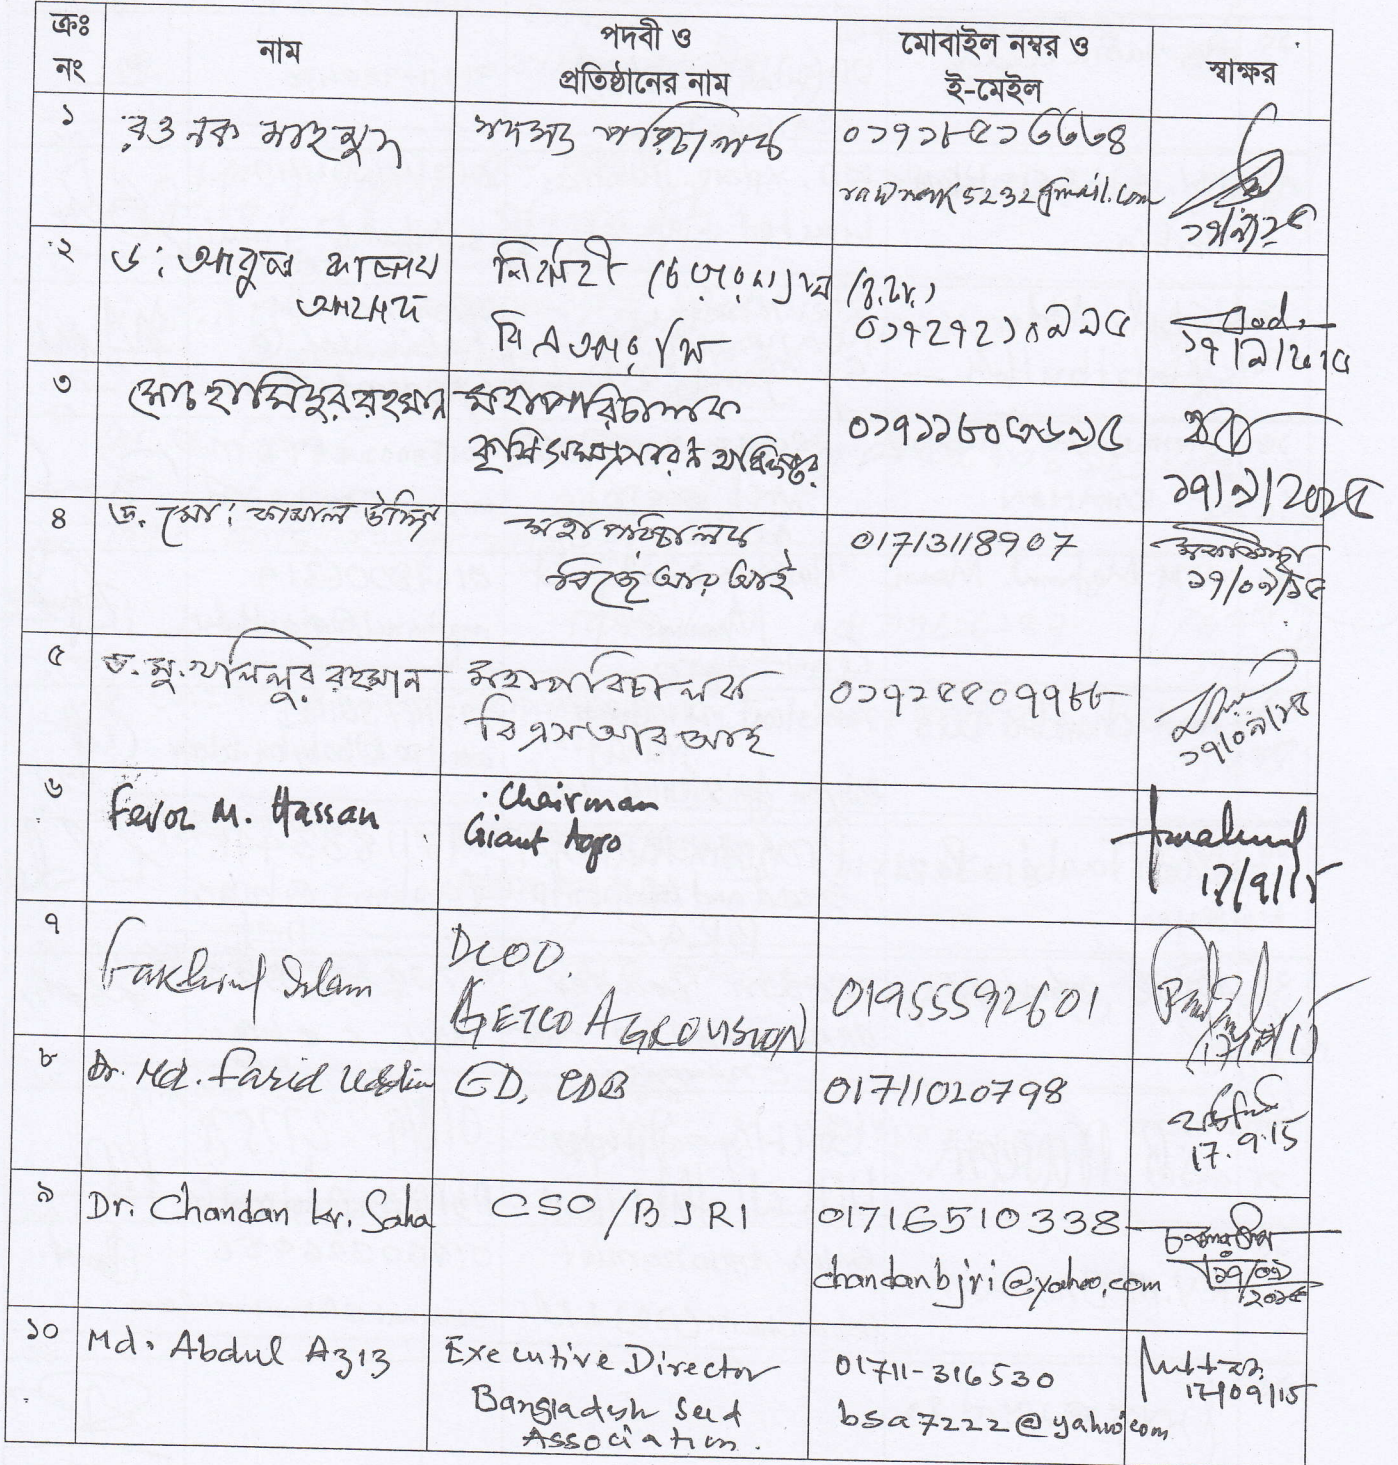 ক্রঃ নং
নাম
পদবী ও
প্রতিষ্ঠানের নাম
মোবাইল নম্বর ও
ই-মেইল
স্বাক্ষর
১
রওনক মাহমুদ
পরিচালক
rawnak5232@gmail.com
২
ড: আবুল কালাম
আযাদ
নির্বাহী
০১৭২৭২১০৯৯৫
৩
মোঃ হামিদুর রহমান
মহাপরিচালক
কৃষি সম্প্রসারণ অধিদপ্তর
০১৭১১৮০৩৬৯৫
১৭/৯/2০১৫
৪
ড. মো: কামাল উদ্দিন
মহাপরিচালক
বিজেআরআই
01713118907
১৭/০৯/১৫
৫
ড. মু. খলিলুর রহমান
মহাপরিচালক
বিএসআরআই
০১৭১৫৫০৭৭৮৮
১৭/০৯/১৫
৬
M. Hassan
Chairman
Giant Agro
17/9/15
৭
Fakhrul Islam
GETCO AGROVISION
01955592601
৮
Dr. Md. Farid Uddin
ED, CDB
01711020798
17.9.15
৯
Dr. Chandan Kr. Saha
CSO/BJRI
01716510338
chandanbjri@yahoo.com
১৭/০৯
২০১৫
১০
Md. Abdul Aziz
Executive Director
Bangladesh Seed
Association.
01711-316530
bsa7222@yahoo.com
17/09/15